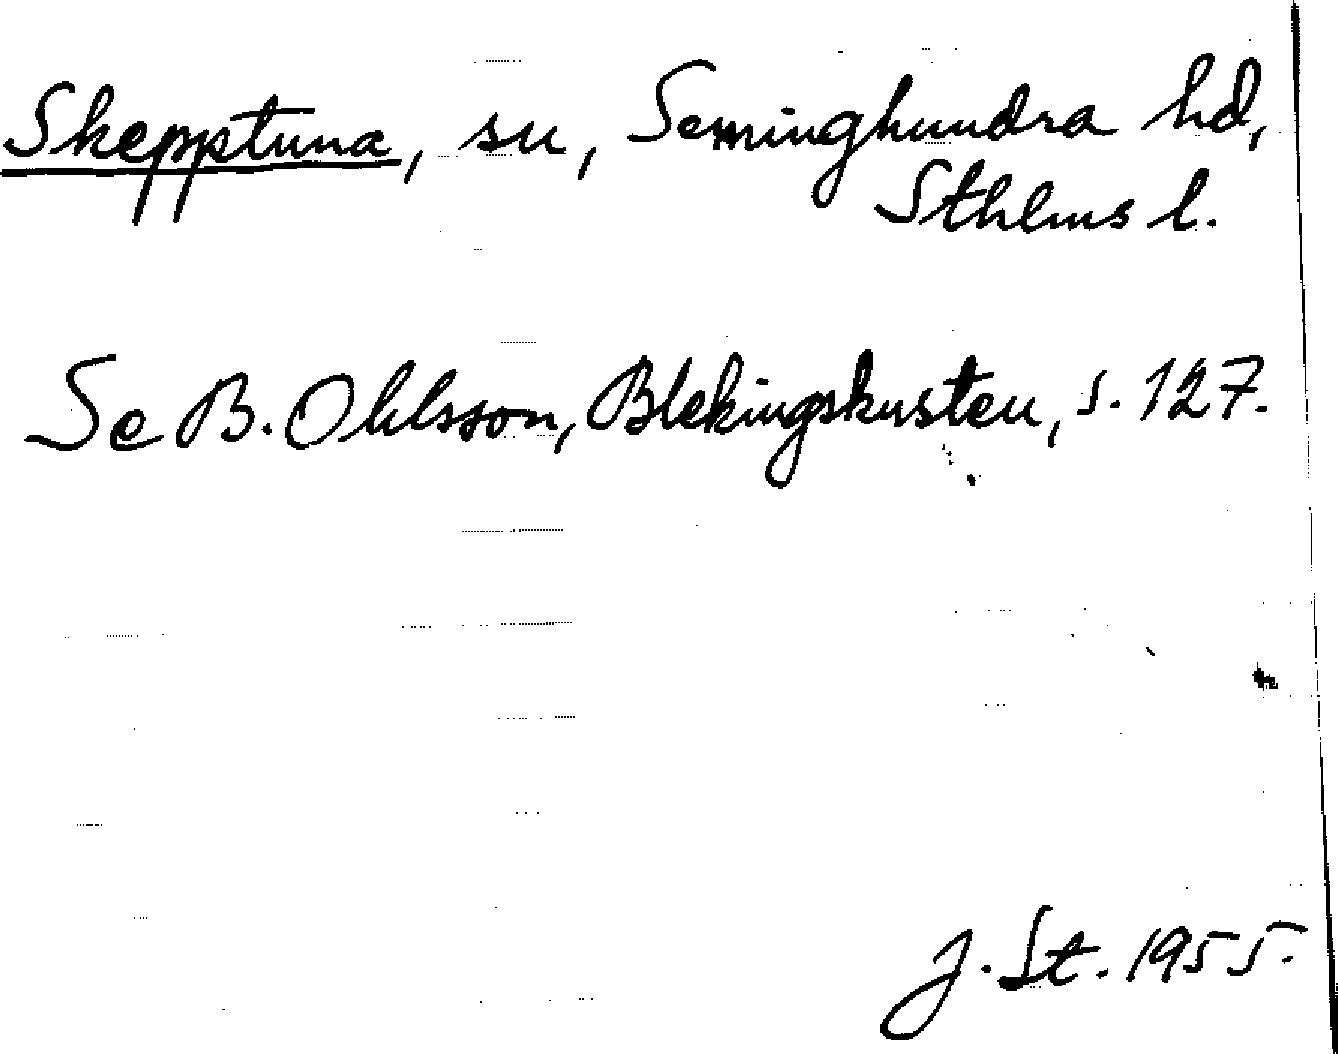 Skepptuna, sn, Seminghundra hd,
Sthlms l.
Se B. Ohlsson, Blekingskusten, s. 127.
J. St. 1955.